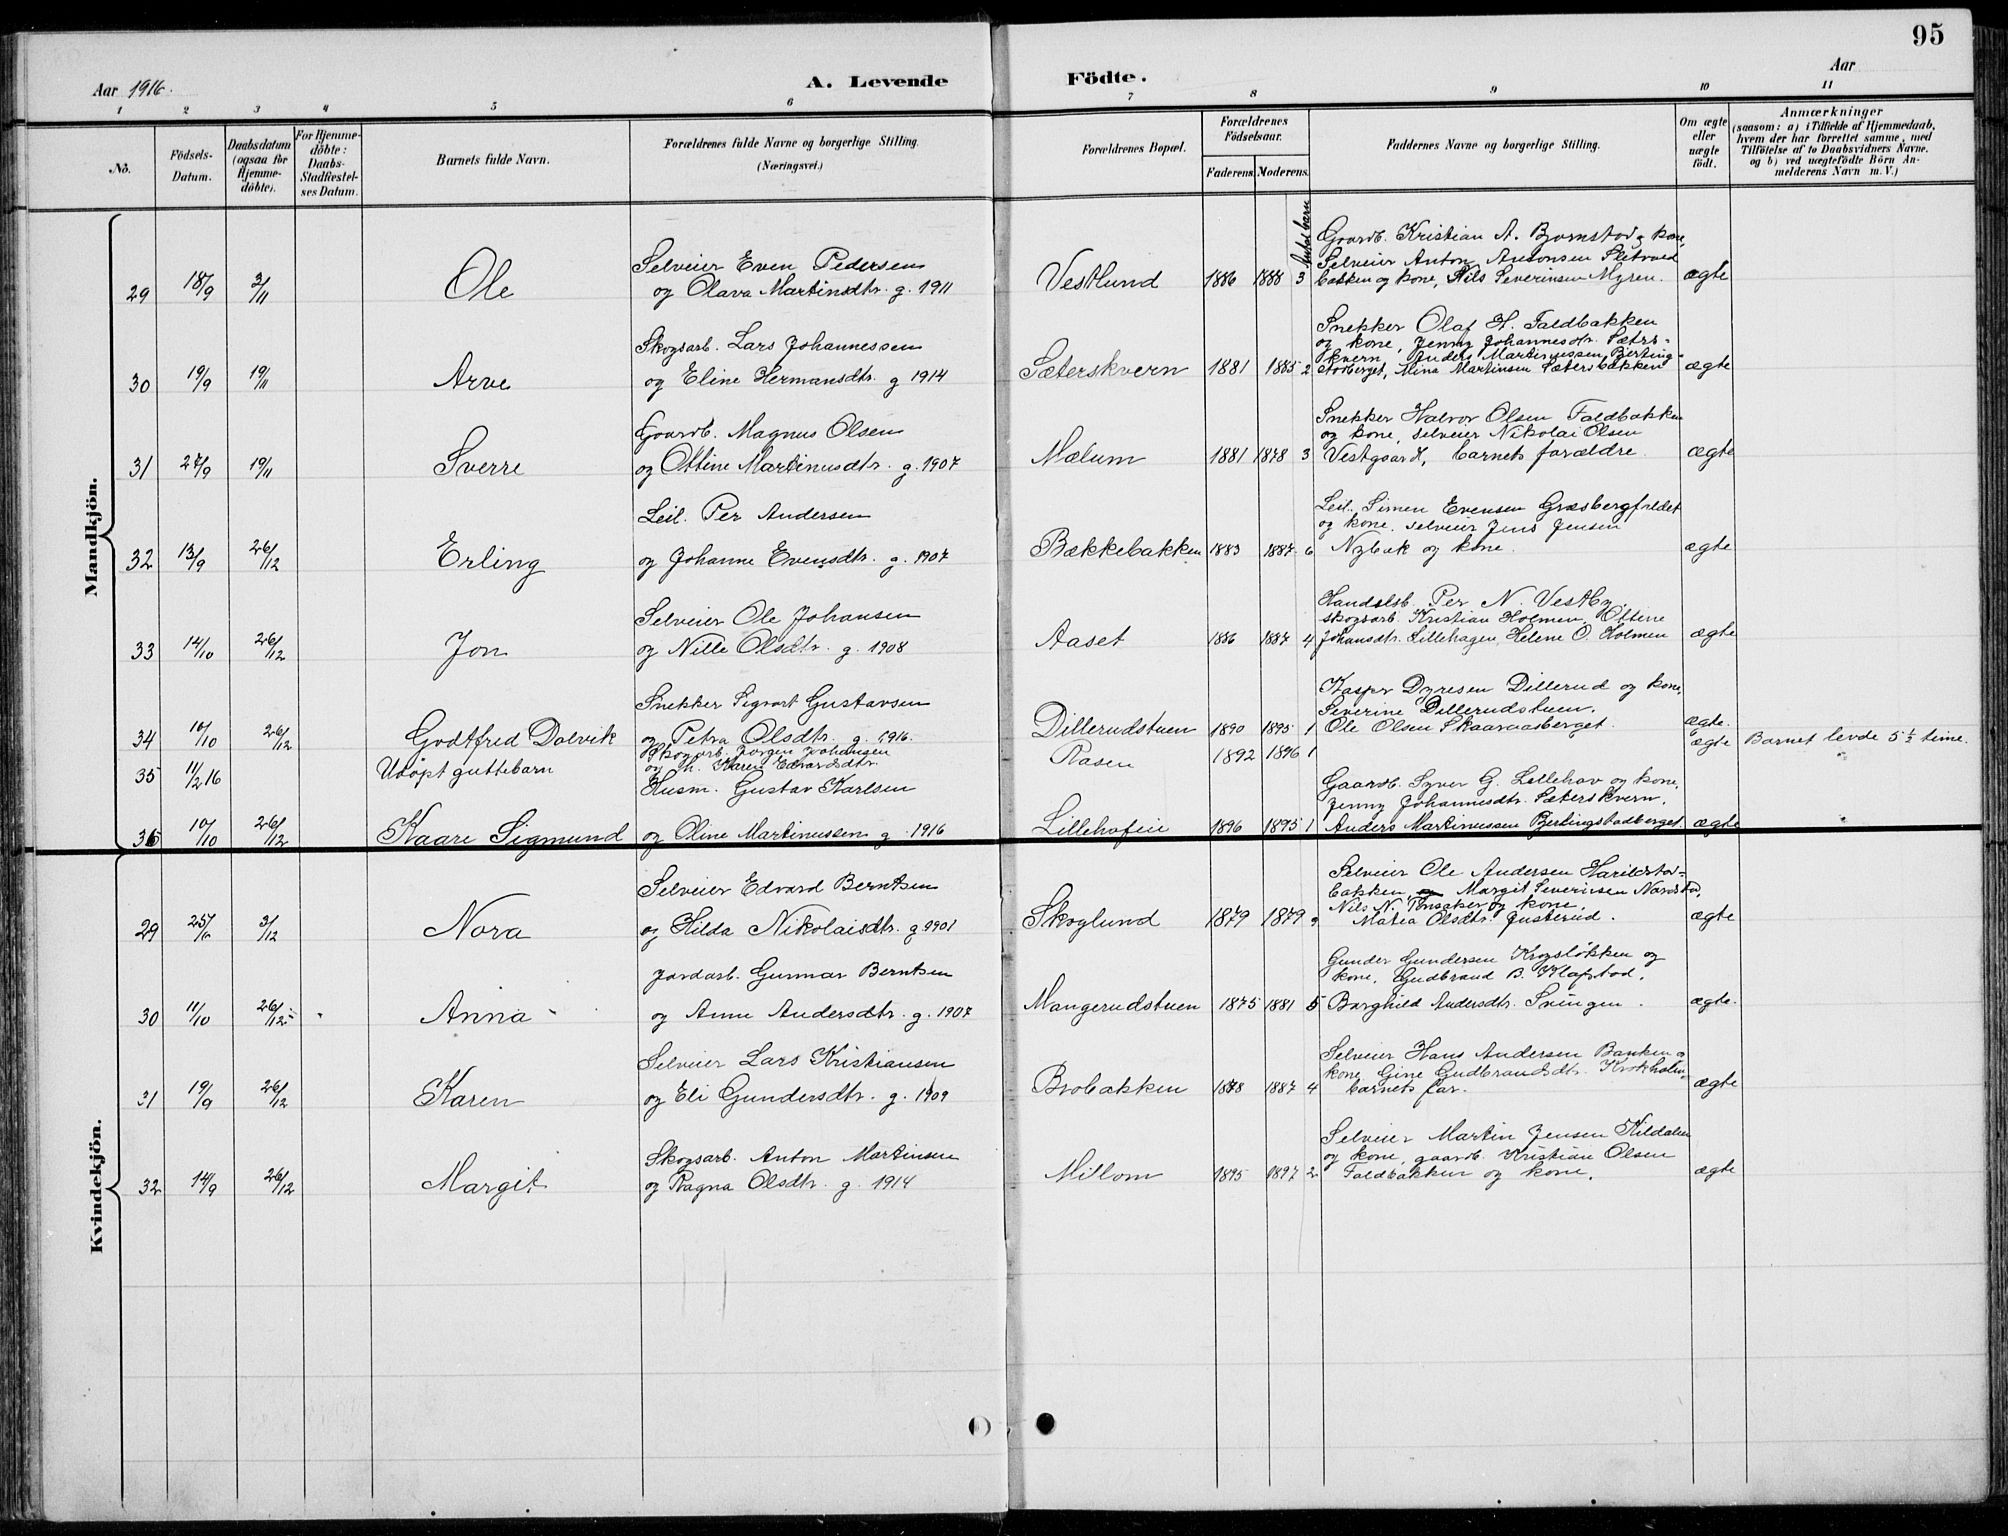 95
Aar 1916.
A. Levende Födte.
Aar
1 2 3 4 5 6 7 8 9 10 11
No.
Födsels-Datum.
Daabsdatum (ogsaa for Hjemme-döbte).
For Hjemme-döbte: Daabs-Stadfæstel-ses Datum.
Barnets fulde Navn.
Forældrenes fulde Navne og borgerlige Stilling.
(Næringsvei.)
Forældrenes Bopæl.
Forældrenes Födselsaar.
Faderens. Moderens.
Antal barn
Faddernes Navne og borgerlige Stilling.
Om ægte eller uægte födt.
Anmærkninger
(saasom: a) i Tilfælde af Hjemmedaab, hvem der har forrettet samme, med Tilföielse af to Daabsvidners Navne, og b) ved uægtefödte Börn An-melderens Navn m. V.)
Mandkjön.
Gaardb. Kristian A. Bjørnstad og kone,
Selveier Even Pedersen
Selveier Anton Antonsen Sletved
29 18/9 3/11 Ole og Olava Martinsdtr. g. 1911 Vestlund 1886 1888 3 bakken og kone, Nils Severinsen Myren. ægte
Snekker Olaf H. Faldbakken
Skogsarb. Lars Johannessen
og kone, Jenny Johannesdtr. Sæters-
kvern, Anders Martinussen Bjerting-
30 19/9 19/11 Arve og Eline Hermansdtr. g 1914 Sæterskvern 1881 1885 2 stadberget, Mina Martinsen Sætersbakken ægte
Snekker Halvor Olsen Faldbakken
Gaardb. Magnus Olsen
og kone, selveier Nikolai Olsen
31 27/9 19/11 Sverre og Ottine Martinusdtr. g. 1907 Mælum 1881 1878 3 Vestgaard, barnets forældre. ægte
Leil. Simen Evensen Græsbergfeldet
Leil. Per Andersen
og kone, selveier Jens Jensen
32 13/9 26/12 Erling og Johanne Evensdtr. g. 1907 Bækkebakken 1883 1887 6 Nybak og kone. ægte
Handelsb. Per N. Vestby
Selveier Ole Johansen
skogsarb. Kristian Holmen, Ottine
33 14/10 26/12 Jon og Nille Olsdtr. g. 1908 Aaset 1886 1887 4 Johansdtr. Lillehagen, Helene O. Holmen ægte
Kasper Dyresen Dillerud og kone,
Snekker Sigvart Gustavsen
Severine Dillerudstuen,
34 10/10 26/12 Godtfred Dolvik og Petra Olsdtr. g. 1916. Dillerudstuen 1890 1895 1 Ole Olsen Skaaraasberget. ægte.
Skogsarb. Jørgen Johansen
35 11/2 16 Udøpt guttebarn og h. Karen Edvardsdtr. Rasen 1892 1896 1 ægte Barnet levde 5 ½ time.
Husm. Gustav Karlsen
Gaardb. Syver G. Lillehov og kone,
Jenny Johannesdtr. Sæterskvern,
36 10/10 26/12 Kaare Sigmund og Oline Martinussen g 1916 Lillehofeie 1896 1895 1 Anders Martinussen Bjerlingstadberget ægte
Kvindekjön.
Selveier Ole Andersen Harildstad-
Selveier Edvard Berntsen
bakken, Margit Severinsen Nordstad,
Nils N. Tønsaker og kone,
29 25/ 3/12 Nora og Hilda Nikolaisdtr. g. 1901 Skoglund 1879 1879 9 Matea Olsdtr. Justerud. ægte
Gunder Gundersen Krogsløkken og
Jordarb. Gunnar Berntsen
kone, Gudbrand B. Klafstad,
30 11/10 26/12 Anna og Anne Andersdtr. g. 1907 Mangerudstuen 1875 1881 5 Borghild Andersdtr. Svingen. ægte.
Selveier Hans Andersen Banken og
Selveier Lars Kristiansen
kone, Gine Gudbrandsdtr. Krokholen,
31 19/9 26/12 Karen og Eli Gundersdtr. g. 1909 Brobakken 1878 1887 4 barnets far. ægte
Selveier Martin Jensen Kildalen
Skogsarb. Anton Martinsen
og kone, gaardb. Kristian Olsen
32 14/9 26/12 Margit og Ragna Olsdtr. g. 1914 Millom 1895 1897 2 Faldbakken og kone. ægte